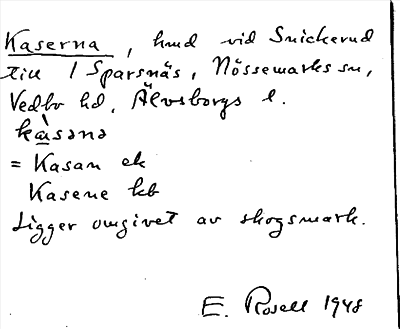 Kaserna, hmd vid Snickerud
till 1 Sparsnäs, Nössemarks sn,
Vedbo hd, Älvsborgs l.
kàsənə
= Kasan ek
Kasene kb
Ligger omgivet av skogsmark.
E. Rosell 1948